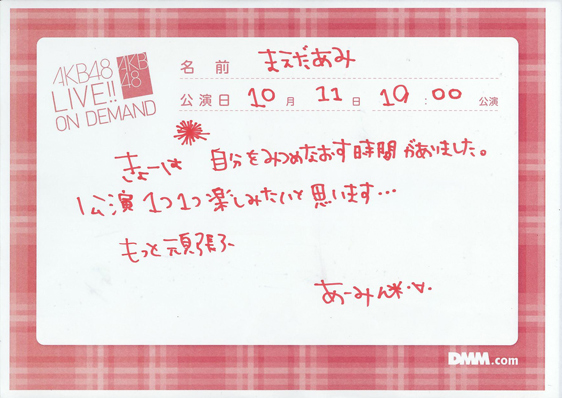 AKB48
LIVE!!
ON DEMAND
AKB
48
名前 まえだあみ
公演日 10月 11日 19:00 公演
きょーは 自分をみつめなおす時間がありました。
1公演1つ1つ楽しみたいと思います…
もっと頑張ろ
あーみん*・v・
DMM.com